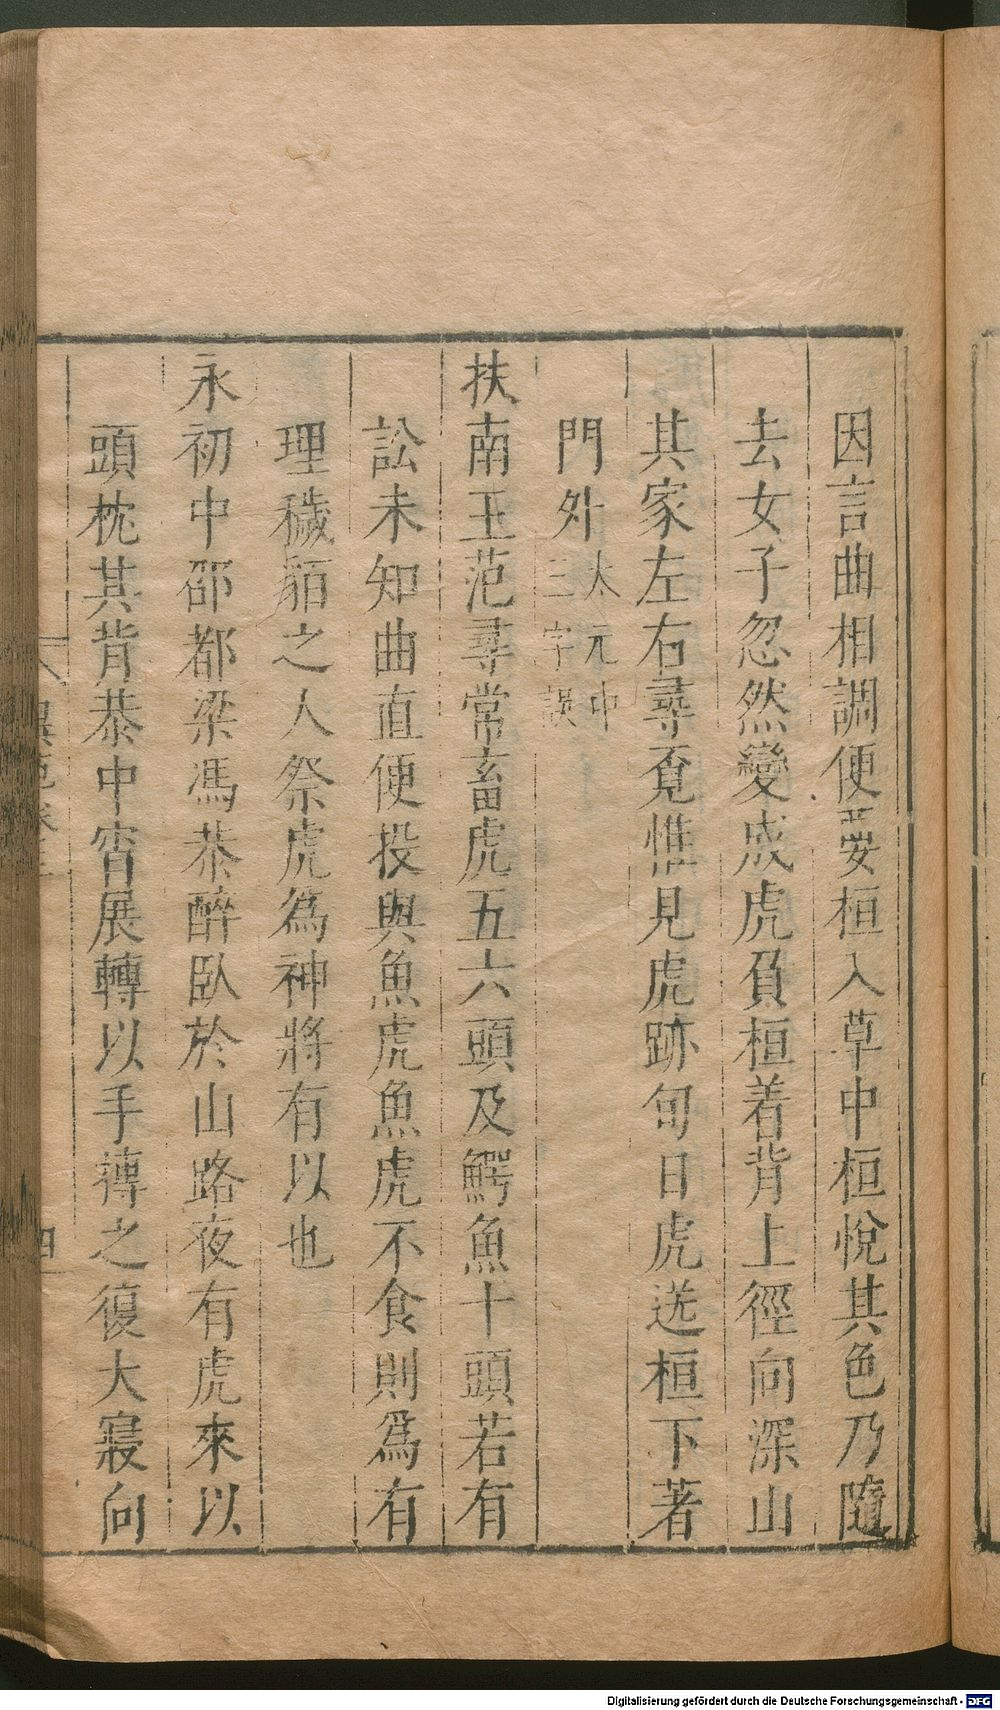 因言曲相調便要桓入草中桓悅其色乃隨
去女子忽然變成虎負桓着背上徑向深山
其家左右尋覓惟見虎跡旬日虎送桓下著
門外太元中三字誤
扶南王范尋常畜虎五六頭及鰐魚十頭若有
訟未知曲直便投與魚虎魚虎不食則爲有
理穢貊之人祭虎為神將有以也
永初中邵都梁馮恭醉臥於山路夜有虎來以
頭枕其背恭中宵展轉以手摶之復大寢向
四
Digitalisierung gefördert durch die Deutsche Forschungsgemeinschaft - DFG